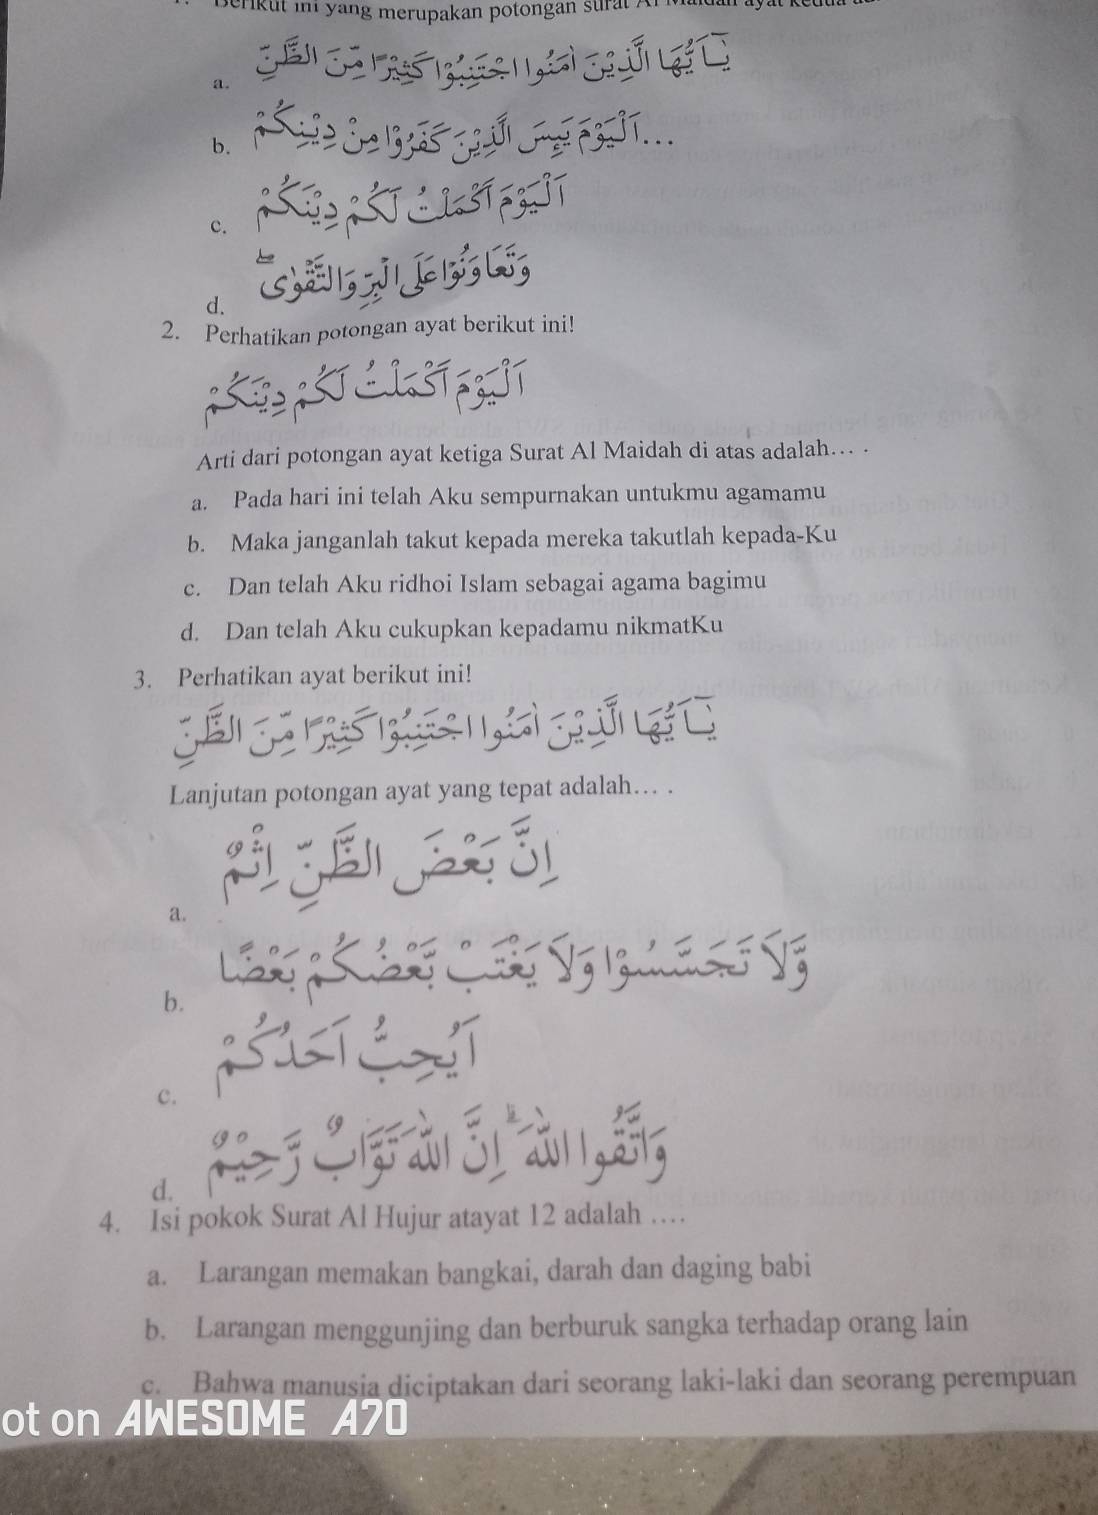 Berikut ini yang merupakan potongan surat Al Maidah ayat kedua
a. يٰٓاَيُّهَا الَّذِيْنَ اٰمَنُوا اجْتَنِبُوْا كَثِيْرًا مِّنَ الظَّنِّ
b. ...اَلْيَوْمَ يَىِٕسَ الَّذِيْنَ كَفَرُوْا مِنْ دِيْنِكُمْ
c. اَلْيَوْمَ اَكْمَلْتُ لَكُمْ دِيْنَكُمْ
d. وَتَعَاوَنُوْا عَلَى الْبِرِّ وَالتَّقْوٰىۖ
2. Perhatikan potongan ayat berikut ini!
اَلْيَوْمَ اَكْمَلْتُ لَكُمْ دِيْنَكُمْ
Arti dari potongan ayat ketiga Surat Al Maidah di atas adalah... .
a. Pada hari ini telah Aku sempurnakan untukmu agamamu
b. Maka janganlah takut kepada mereka takutlah kepada-Ku
c. Dan telah Aku ridhoi Islam sebagai agama bagimu
d. Dan telah Aku cukupkan kepadamu nikmatKu
3. Perhatikan ayat berikut ini!
يٰٓاَيُّهَا الَّذِيْنَ اٰمَنُوا اجْتَنِبُوْا كَثِيْرًا مِّنَ الظَّنِّ
Lanjutan potongan ayat yang tepat adalah... .
a. اِنَّ بَعْضَ الظَّنِّ اِثْمٌ
b. وَّلَا تَجَسَّسُوْا وَلَا يَغْتَبْ بَّعْضُكُمْ بَعْضًا
c. اَيُحِبُّ اَحَدُكُمْ
d. وَاتَّقُوا اللّٰهَ ۗاِنَّ اللّٰهَ تَوَّابٌ رَّحِيْمٌ
4. Isi pokok Surat Al Hujur atayat 12 adalah ....
a. Larangan memakan bangkai, darah dan daging babi
b. Larangan menggunjing dan berburuk sangka terhadap orang lain
c. Bahwa manusia diciptakan dari seorang laki-laki dan seorang perempuan
ot on AWESOME A70